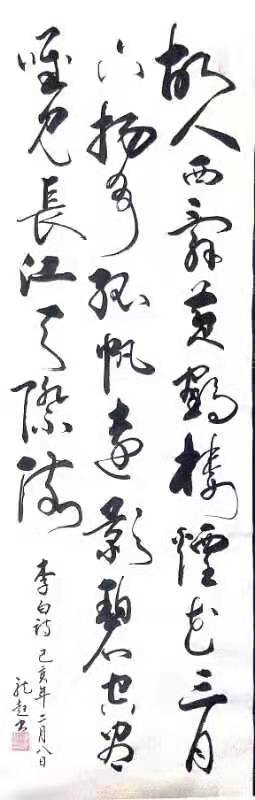 故人西辭黃鶴樓煙花三月
下揚州孤帆遠影碧空盡
唯見長江天際流
李白詩 己亥年二月八日